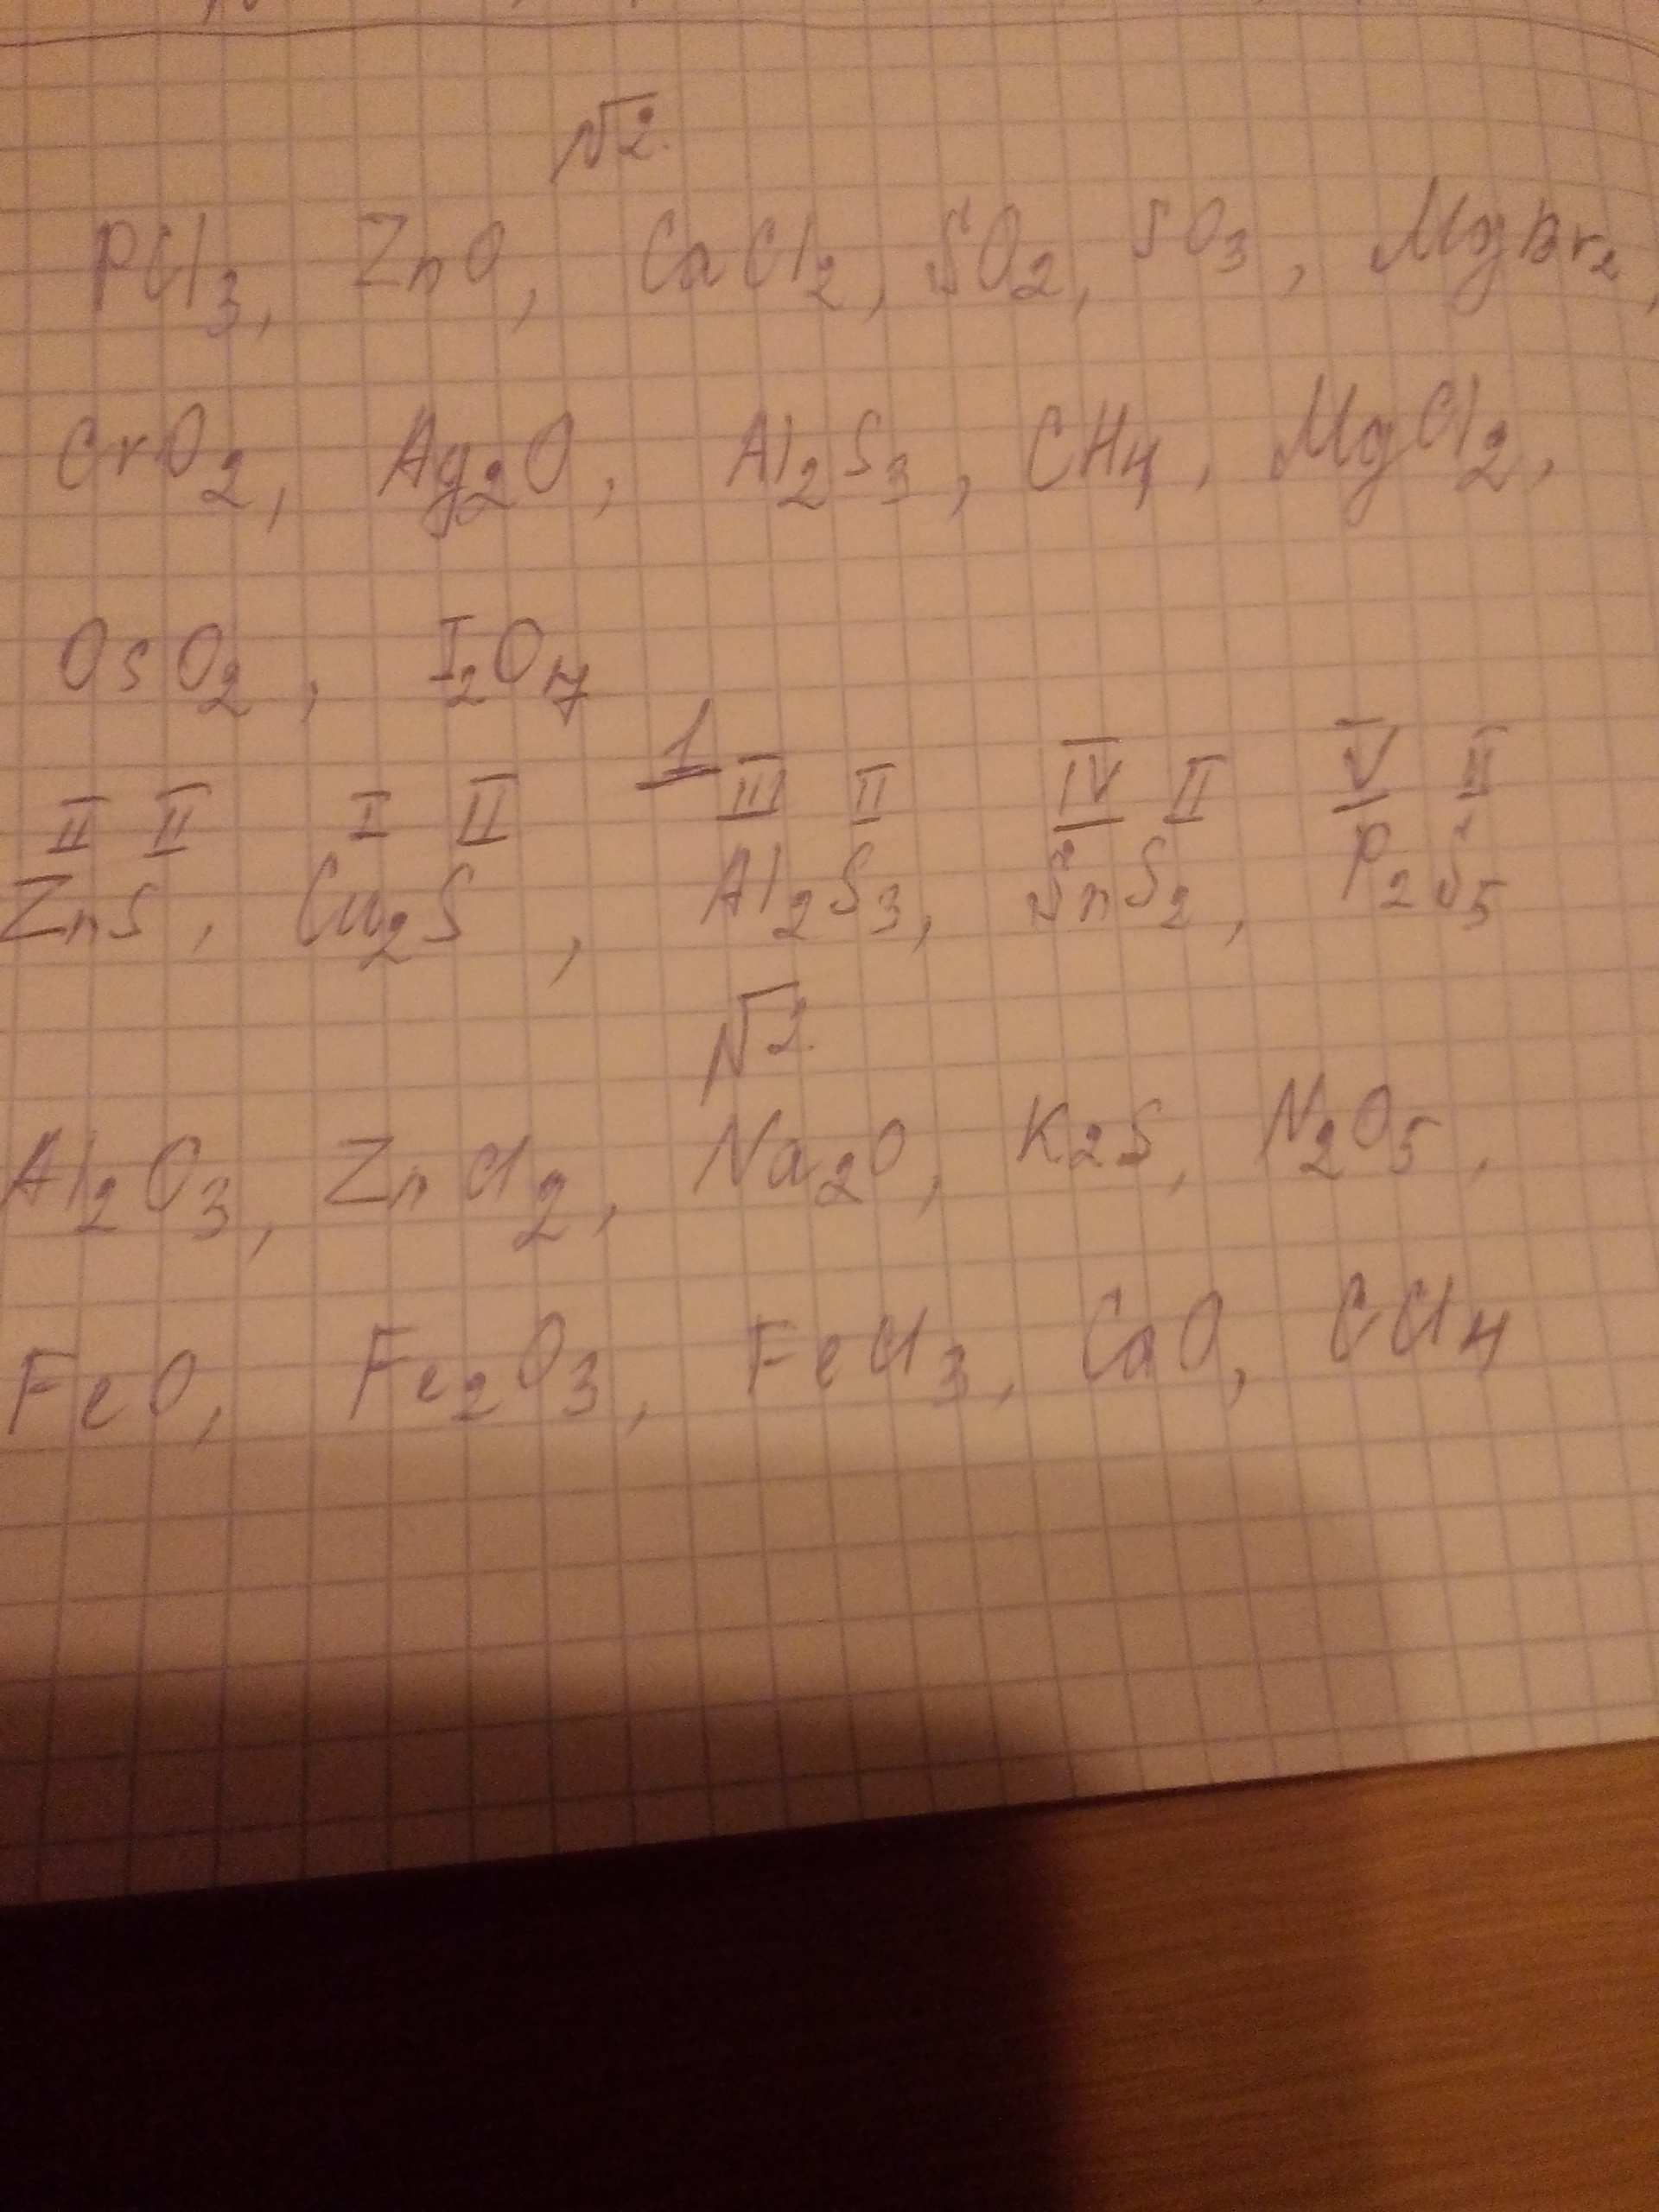 №2.
PCl₃, ZnO, CaCl₂, SO₂, SO₃, MgBr₂,
CrO₂, Ag₂O, Al₂S₃, CH₄, MgCl₂,
OsO₂, I₂O₇
1
II II I II III II IV II V II
ZnS, Cu₂S, Al₂S₃, SnS₂, P₂S₅
№2.
Al₂O₃, ZnCl₂, Na₂O, K₂S, N₂O₅,
FeO, Fe₂O₃, FeCl₃, CaO, CCl₄